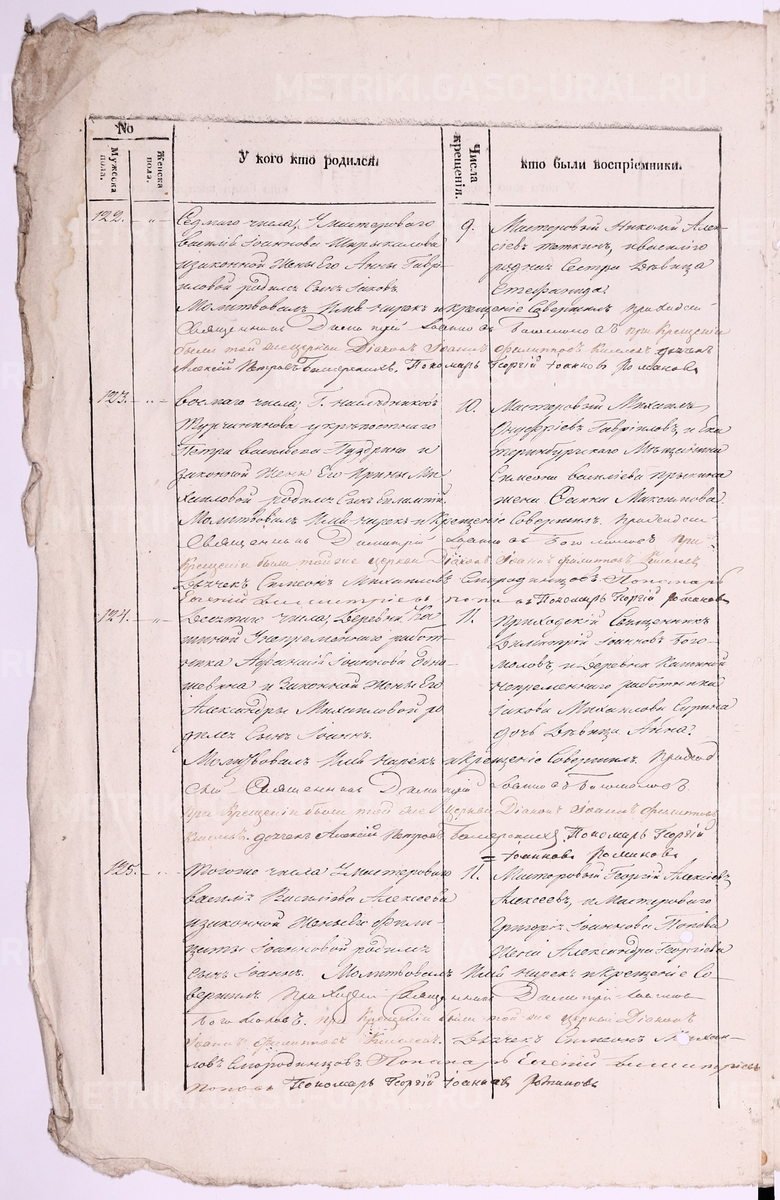 METRIKI.GASO-URAL.RU
No
Мужеска пола.
Женска пола.
У кого кто родился.
Числа крещенія.
кто были воспріемники.
122. - „ -
Седмаго числа, У мастероваго
Василія Іоаннова
изаконной Жены Его Анны Гаврі-
иловой родился Сынъ Іаковъ.
9.
Мастеровый Николай Алек-
сѣевъ
родная Сестра Дѣвица
Стефанида.
Молитвовалъ Имя нарекъ и крещеніе Совершилъ Приходскій
Священникъ Димитрій Іоанновъ Богомоловъ при Крещеніи
были той же церкви Діаконъ Іоаннъ Филиповъ Киселевъ дьячекъ
Алексій Петровъ Пономарь Георгій Іоанновъ Романовъ
123. - „ -
восмаго числа, Г. Наслѣдниковъ
Турчаниновыхъ укрѣпостнаго
Петра Васильева и
законной Жены Его Ирины Ми-
хаиловой родился Сынъ
10.
Мастеровый Михаилъ
Гавріиловъ, и Ека-
теринбургскаго Мѣщанина
Симеона Василіева
жена Максимова
Молитвовалъ Имя нарекъ и Крещеніе Совершилъ Приходскій
Священникъ Димитрій Іоанновъ Богомоловъ При
Крещеніи были той же церкви Діаконъ Іоаннъ Филиповъ Киселевъ
Дьячекъ Симеонъ Михаиловъ Смородинцовъ Пономарь
Евгеній Димитріевъ Поповъ Пономарь Георгій Романовъ
124. - „ -
Десятаго числа, Деревни Ка-
Унепременнаго работ-
ника Афанасія Іоаннова
и законной Жены Его
Александры Михаиловой ро-
дился Сынъ Іоаннъ.
11.
Приходскій Священникъ
Димитрій Іоанновъ Бого-
моловъ, и деревни
непременнаго работника
Іакова Михаилова
дочь Дѣвица Анна.
Молитвовалъ Имя Нарекъ и Крещеніе Совершилъ Приход-
скій Священникъ Димитрій Іоанновъ Богомоловъ
При Крещеніи были той же Церкви Діаконъ Іоаннъ Филиповъ
Киселевъ дьячекъ Алексій Петровъ Пономарь Георгій
= Іоанновъ Романовъ
125. - „ -
Тогоже числа, У мастероваго
Василія Василіева Алексѣева
изаконной Жены Его Фили-
цаты Іоанновой родился
сынъ Іоаннъ.
11.
Мастеровый Георгій Алексѣевъ
Алексеевъ, и Мастероваго
Григорія Іоаннова Попова
Жена Александра Георгіева
Молитвовалъ Имя нарекъ и крещеніе Со-
вершилъ Приходскій Священникъ Димитрій Іоанновъ
Богомоловъ. При Крещеніи были той же церкви Діаконъ
Іоаннъ Филиповъ Киселевъ Дьячекъ Симеонъ Михаи-
ловъ Смородинцовъ Пономарь Евгеній Димитріевъ
Поповъ Пономарь Георгій Іоанновъ Романовъ